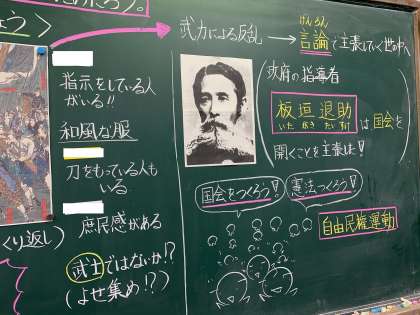 ょう>
指示をしている人
がいる!!
和風な服
刀をもっている人も
いる
庶民感がある
くり返し)
武士ではないか!?
(よせ集め!?)
武力による反乱
げんろん
言論で主張していく世の中へ
政府の指導者
板垣退助は国会を
いたがきたいすけ
開くことを主張した!
国会をつくろう!
憲法つくろう!
自由民権運動